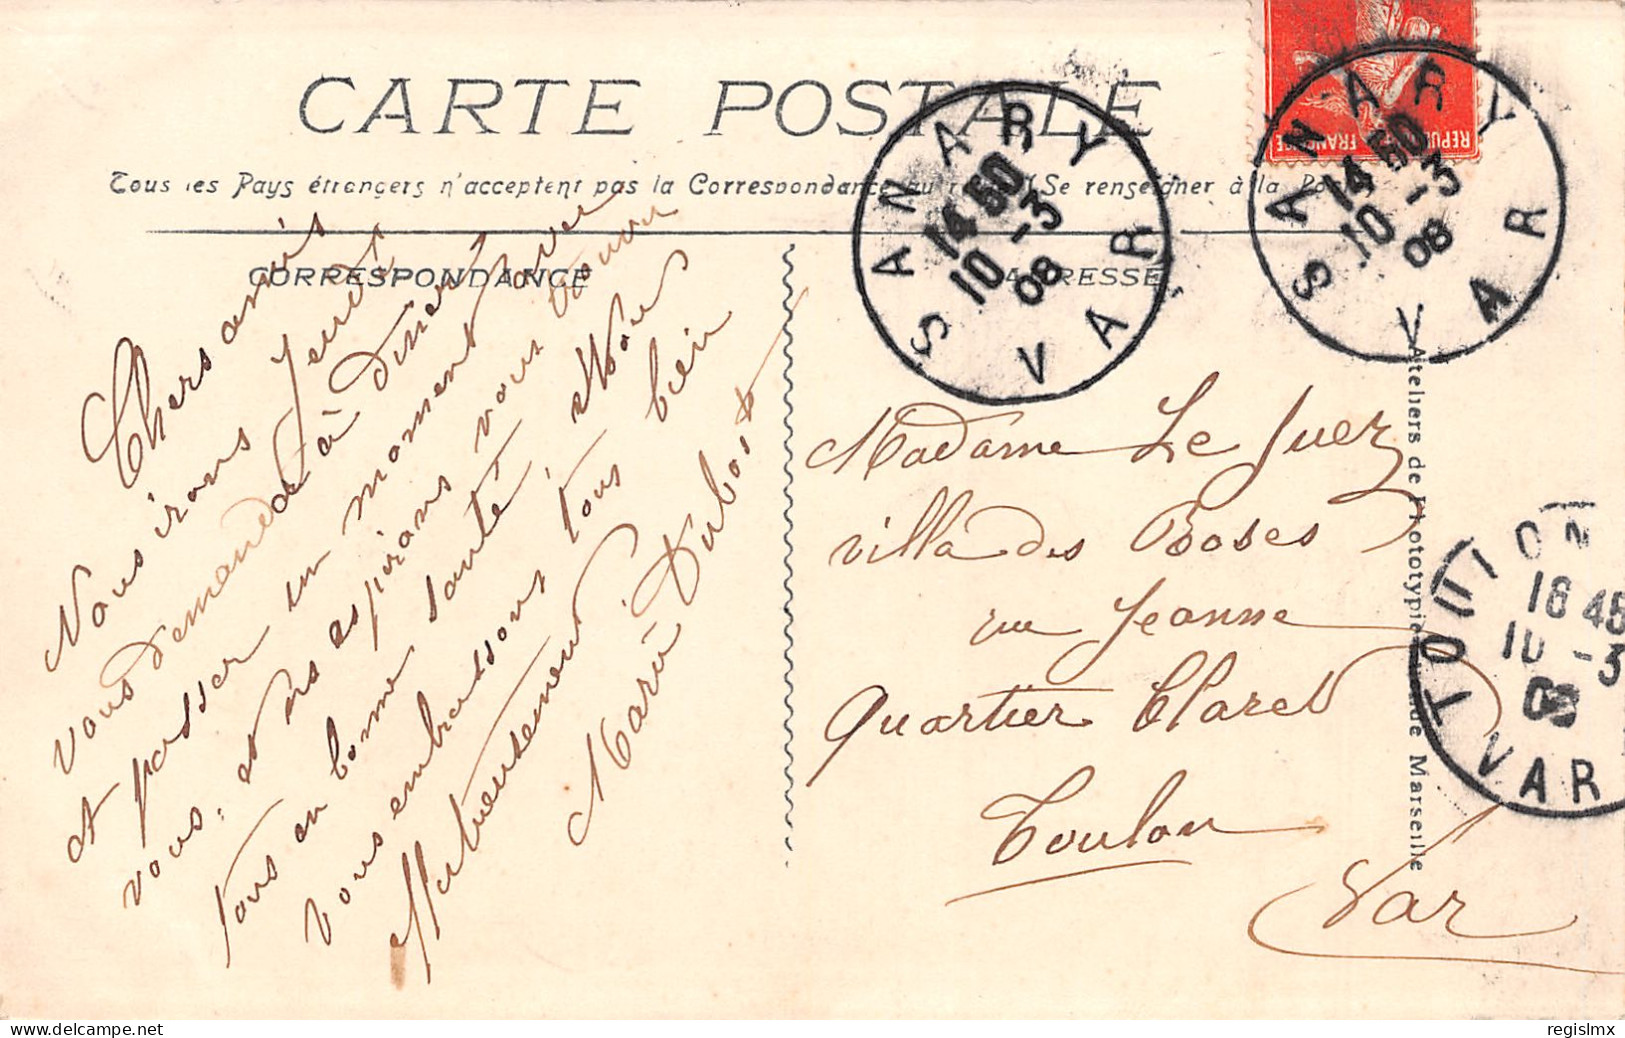 CARTE POSTALE
Tous les Pays étrangers n'acceptent pas la Correspondance au recto (Se renseigner à la Poste)
CORRESPONDANCE
ADRESSE
Chers amis
Nous irons Jeudi
vous demander à diner
et passer un moment avec
vous, nous espérons vous trouver
tous en bonne santé. Nous
vous embrassons tous bien
affectueusement
Marie Dubost
Madame Le Juez
villa des Roses
rue Jeanne
Quartier Claret
Toulon
Var
REPUB FRANCAISE
SANARY VAR
14 50
10 -3
08
SANARY VAR
14 50
10 -3
08
TOULON VAR
16 45
10 -3
08
Ateliers de Phototypie de Marseille
delcampe.net
regislmx